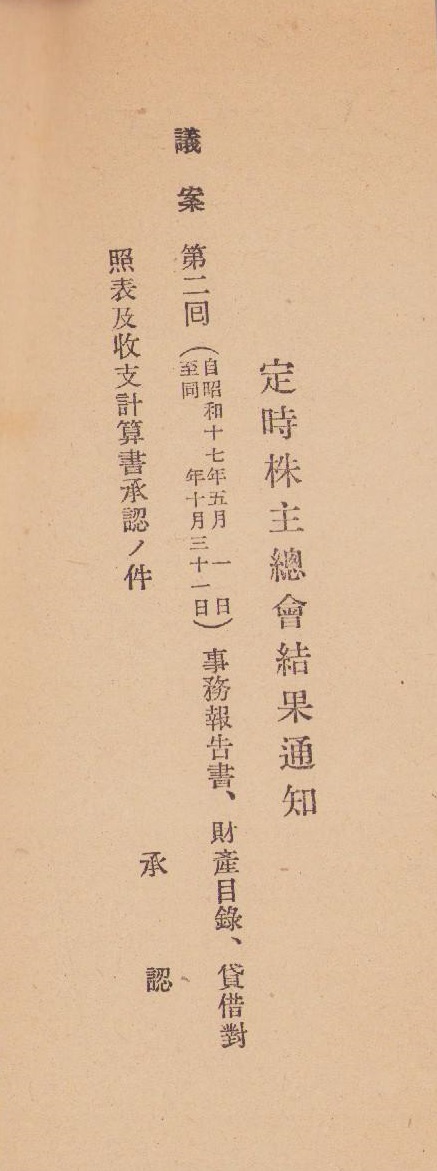 定時株主總會結果通知
議案 第二回(自昭和十七年五月一日至同年十月三十一日)事務報告書、財產目錄、貸借對
照表及收支計算書承認ノ件
承認